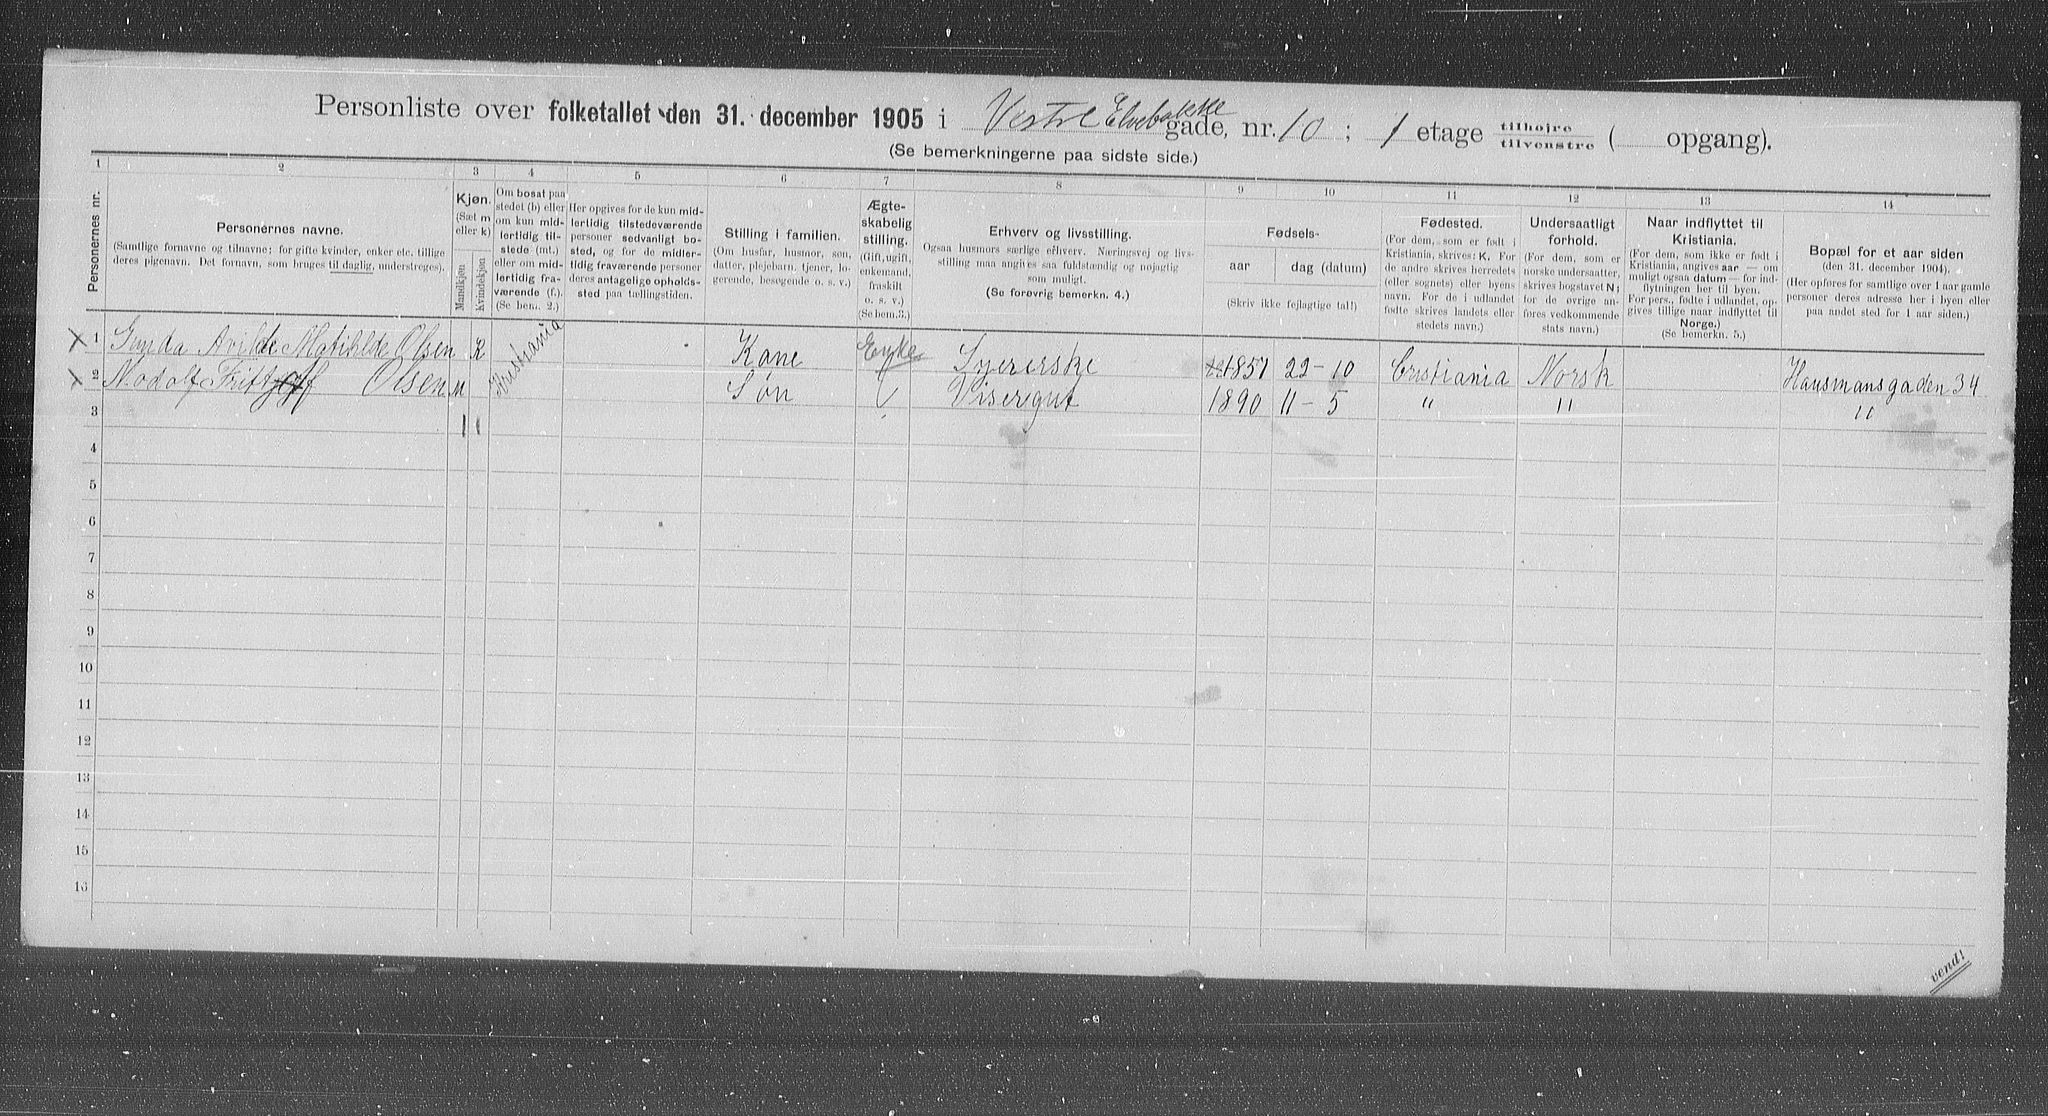 Personliste over folketallet den 31. december 1905 i Vestre Elvebakke gade, nr. 10 ; 1 etage tilhøjre tilvenstre ( opgang).
(Se bemerkningerne paa sidste side.)
1 2 3 4 5 6 7 8 9 10 11 12 13 14
Personernes nr.
Personernes navne.
(Samtlige fornavne og tilnavne; for gifte kvinder, enker etc. tillige
deres pigenavn. Det fornavn, som bruges til daglig, understreges).
Kjøn.
(Sæt m
eller k)
Mandkjøn
Kvindekjøn
Om bosat paa
stedet (b) eller
om kun mid-
lertidig til-
stede (mt.)
eller om mid-
lertidig fra-
værende (f.).
(Se bem. 2.)
Her opgives for de kun mid-
lertidig tilstedeværende
personer sedvanligt bo-
sted, og for de midler-
tidig fraværende personer
deres antagelige opholds-
sted paa tællingstiden.
Stilling i familien.
(Om husfar, husmor, søn,
datter, plejebarn, tjener, lo-
gerende, besøgende o. s. v.)
Ægte-
skabelig
stilling.
(Gift, ugift,
enkemand,
fraskilt
o. s. v.)
(Se bem.3.)
Erhverv og livsstilling.
Ogsaa husmors særlige erhverv. Næringsvej og livs-
stilling maa angives saa fuldstændig og nøjagtig
som muligt.
(Se forøvrig bemerkn. 4.)
Fødsels-
aar dag (datum)
(Skriv ikke fejlagtige tal!)
Fødested.
(For dem, som er født i
Kristiania, skrives: K. For
de andre skrives herredets
(eller sognets) eller byens
navn. For de i udlandet
fødte skrives landets eller
stedets navn.)
Undersaatligt
forhold.
(For dem, som er
norske undersaatter,
skrives bogstavet N;
for de øvrige an-
føres vedkommende
stats navn.)
Naar indflyttet til
Kristiania.
(For dem, som ikke er født i
Kristiania, angives aar — om
muligt ogsaa datum — for ind-
flytningen her til byen.
For pers., fødte i udlandet, op-
gives tillige naar indflyttet til
Norge.)
(Se bemerkn. 5.)
Bopæl for et aar siden
(den 31. december 1904).
(Her opføres for samtlige over 1 aar gamle
personer deres adresse her i byen eller
paa andet sted for 1 aar siden.)
X 1 Gunda Avilde Matilde Olsen K Kristiania Kone Enke Syerske 1851 22-10 Cristiania Norsk Hausmansgaden 34
X 2 Nodolf Fritjoff Olsen M Søn Visergut 1890 11-5 " " "
3 1 1
4
5
6
7
8
9
10
11
12
13
14
15
16
vend!